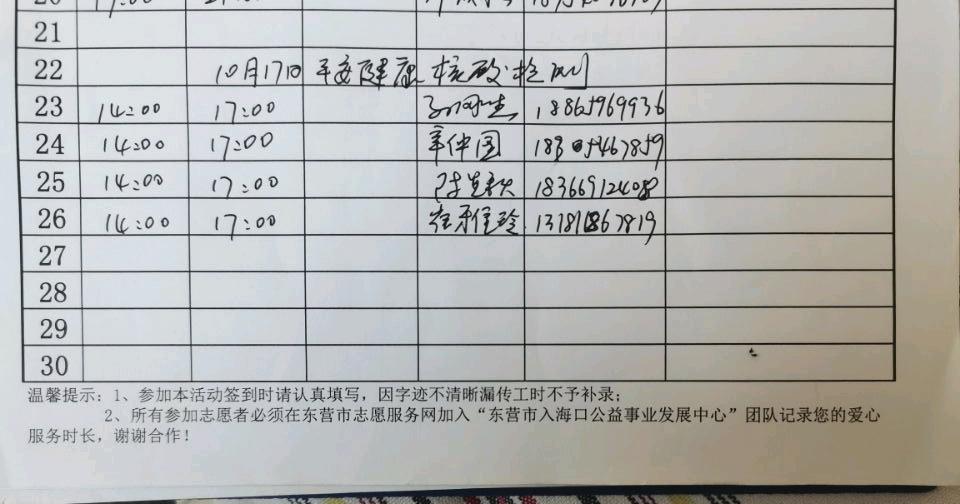 21
22 10月17日 平安健康 核酸检测
23 14:00 17:00 18865969936
24 14:00 17:00 辛仲国
25 14:00 17:00 18366912408
26 14:00 17:00
27
28
29
30
温馨提示：1、参加本活动签到时请认真填写，因字迹不清晰漏传工时不予补录；
2、所有参加志愿者必须在东营市志愿服务网加入“东营市入海口公益事业发展中心”团队记录您的爱心
服务时长，谢谢合作！